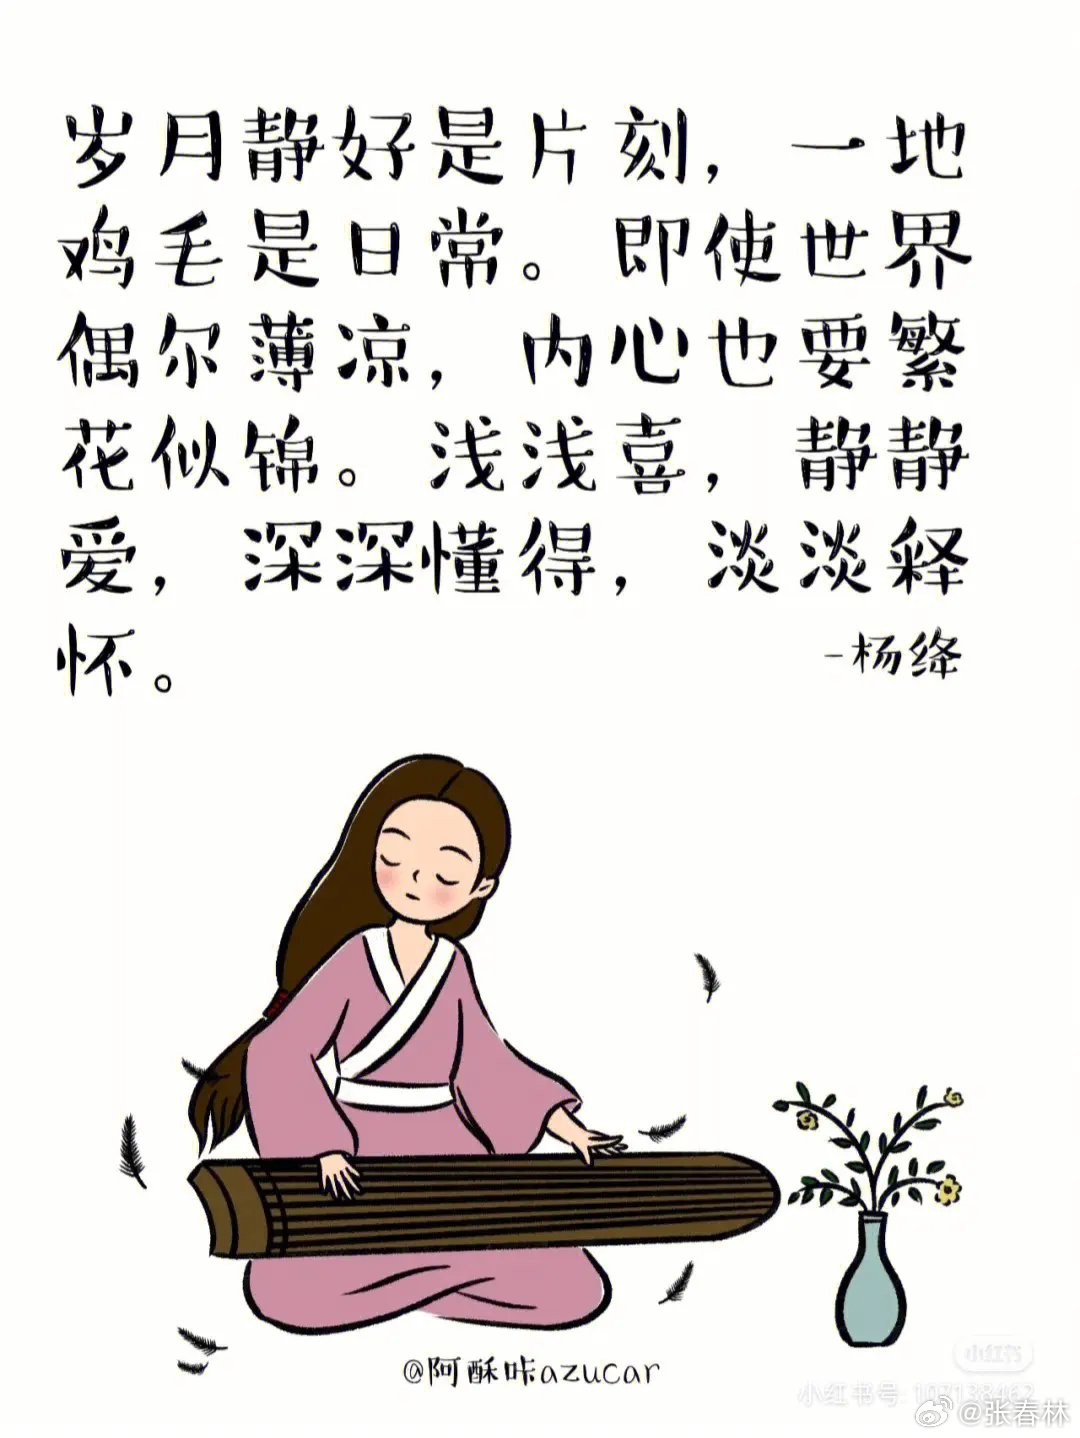 岁月静好是片刻，一地
鸡毛是日常。即使世界
偶尔薄凉，内心也要繁
花似锦。浅浅喜，静静
爱，深深懂得，淡淡释
怀。
-杨绛
@阿酥咔azucar
小红书
小红书号: 107138462
@张春林